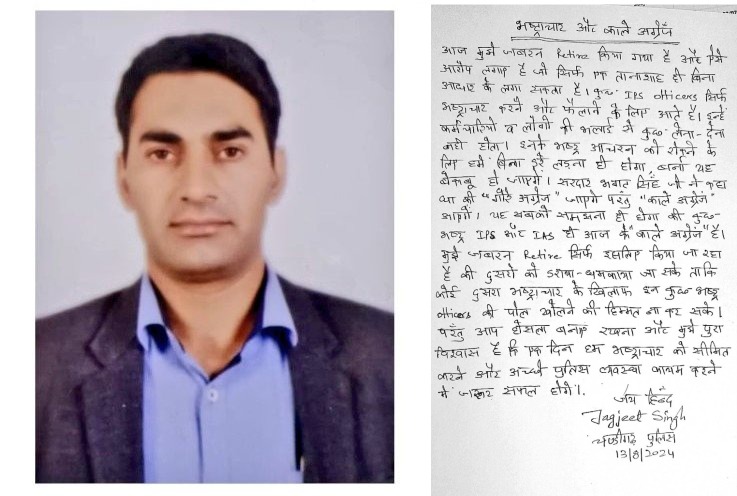 भष्ट्राचार और काले अंग्रेज
आज मुझे जबरन Retire किया गया है और ऐसे
आरोप लगाए है जो सिर्फ एक तानाशाह ही बिना
आधार के लगा सकता है। कुछ IPS officers सिर्फ
भष्ट्राचार करने और फैलाने के लिए आते है। इन्हें
कर्मचारियो व लोगों की भलाई से कुछ लेना-देना
नही होता। इनके भष्ट्र आचरन को रोकने के
लिए हमे बिना डरे लड़ना ही होगा, वर्ना यह
बेकाबू हो जाएंगे। सरदार भगत सिंह जी ने कहा
था की "गोरे अंग्रेज" जाएंगे परंतु "काले अंग्रेज"
आएंगे। यह सबको समझना ही होगा की कुछ
भष्ट्र IPS और IAS ही आज के "काले अंग्रेज" है।
मुझे जबरन Retire सिर्फ इसलिए किया जा रहा
है की दुसरो को डराया-धमकाया जा सके ताकि
कोई दुसरा भष्ट्राचार के खिलाफ इन कुछ भष्ट्र
officers की पोल खोलने की हिम्मत ना कर सके।
परंतु आप हौसला बनाए रखना और मुझे पुरा
विश्वास है कि एक दिन हम भष्ट्राचार को सीमित
करने और अच्छी पुलिस व्यवस्था कायम करने
मे जरूर सफल होंगे।
जय हिन्द
Jagjeet Singh
चण्डीगढ़ पुलिस
13/8/2024